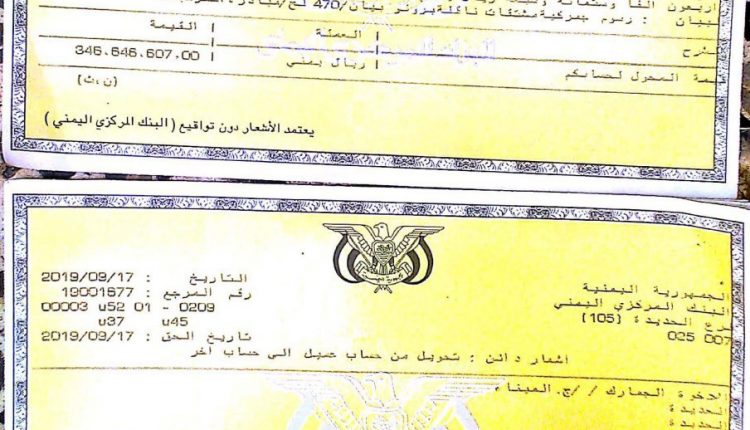 اربعون الفا وستمائة
بيان : رسوم جمركية مشتقات
العملة القيمة
ريال يمني 346,646,607.00
قيمة المحول لحسابكم
(ن،ث)
يعتمد الأشعار دون تواقيع ( البنك المركزي اليمني )
الجمهورية اليمنية
البنك المركزي اليمني
فرع الحديدة (105)
025 007
التاريخ : 2019/09/17
رقم المرجع : 19001677
00003 u52 01 - 0209
u37 u45
تاريخ الحق : 2019/09/17
اشعار دائن : تحويل من حساب عميل الى حساب اخر
الاخوة الجمارك / /ج. الميناء
الحديدة
الحديدة